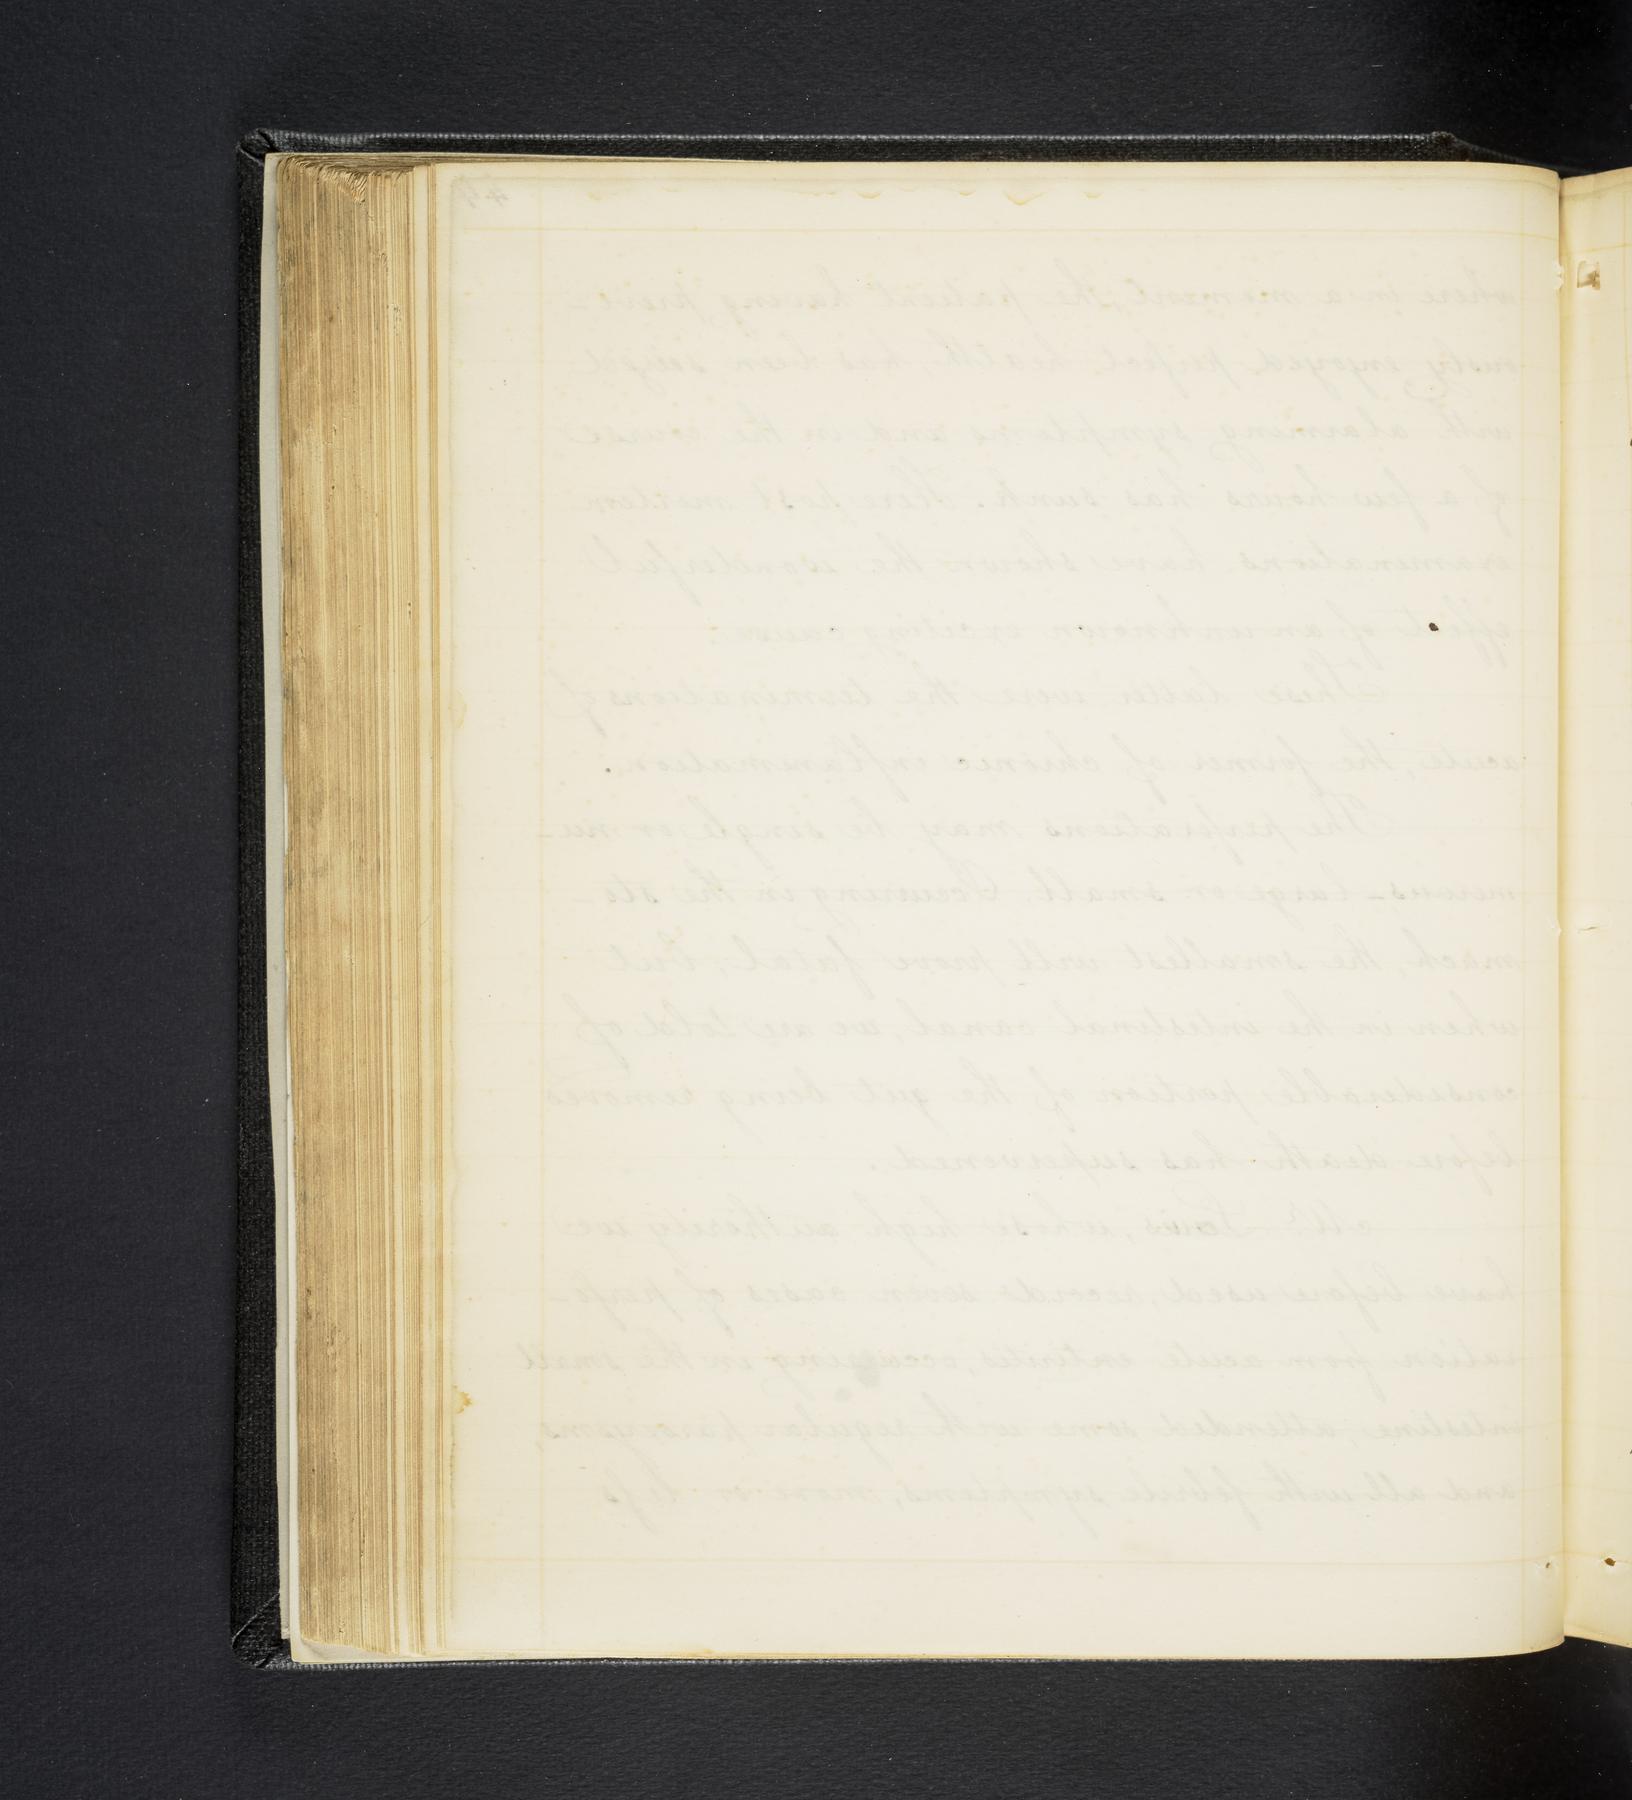 where in a moment, the patient having previ-
ously enjoyed perfect health, has been seized
with alarming symptoms and in the course
of a few hours has sunk. Here post mortem
examinations have shown the wonderful
effect of an unknown exciting cause.
These latter were the terminations of
acute, the former of chronic inflammation.
The perforations may be single or nu-
merous - large or small. Occurring in the sto-
mach, the smallest will prove fatal, but
when in the intestinal canal, we are told of
considerable portion of the gut being removed
before death has supervened.
Mr. Louis, whose high authority we
have before used, records seven cases of perfo-
ration from acute enteritis, occurring in the small
intestine, attended some with regular paroxysms,
and all with febrile symptoms, more or less